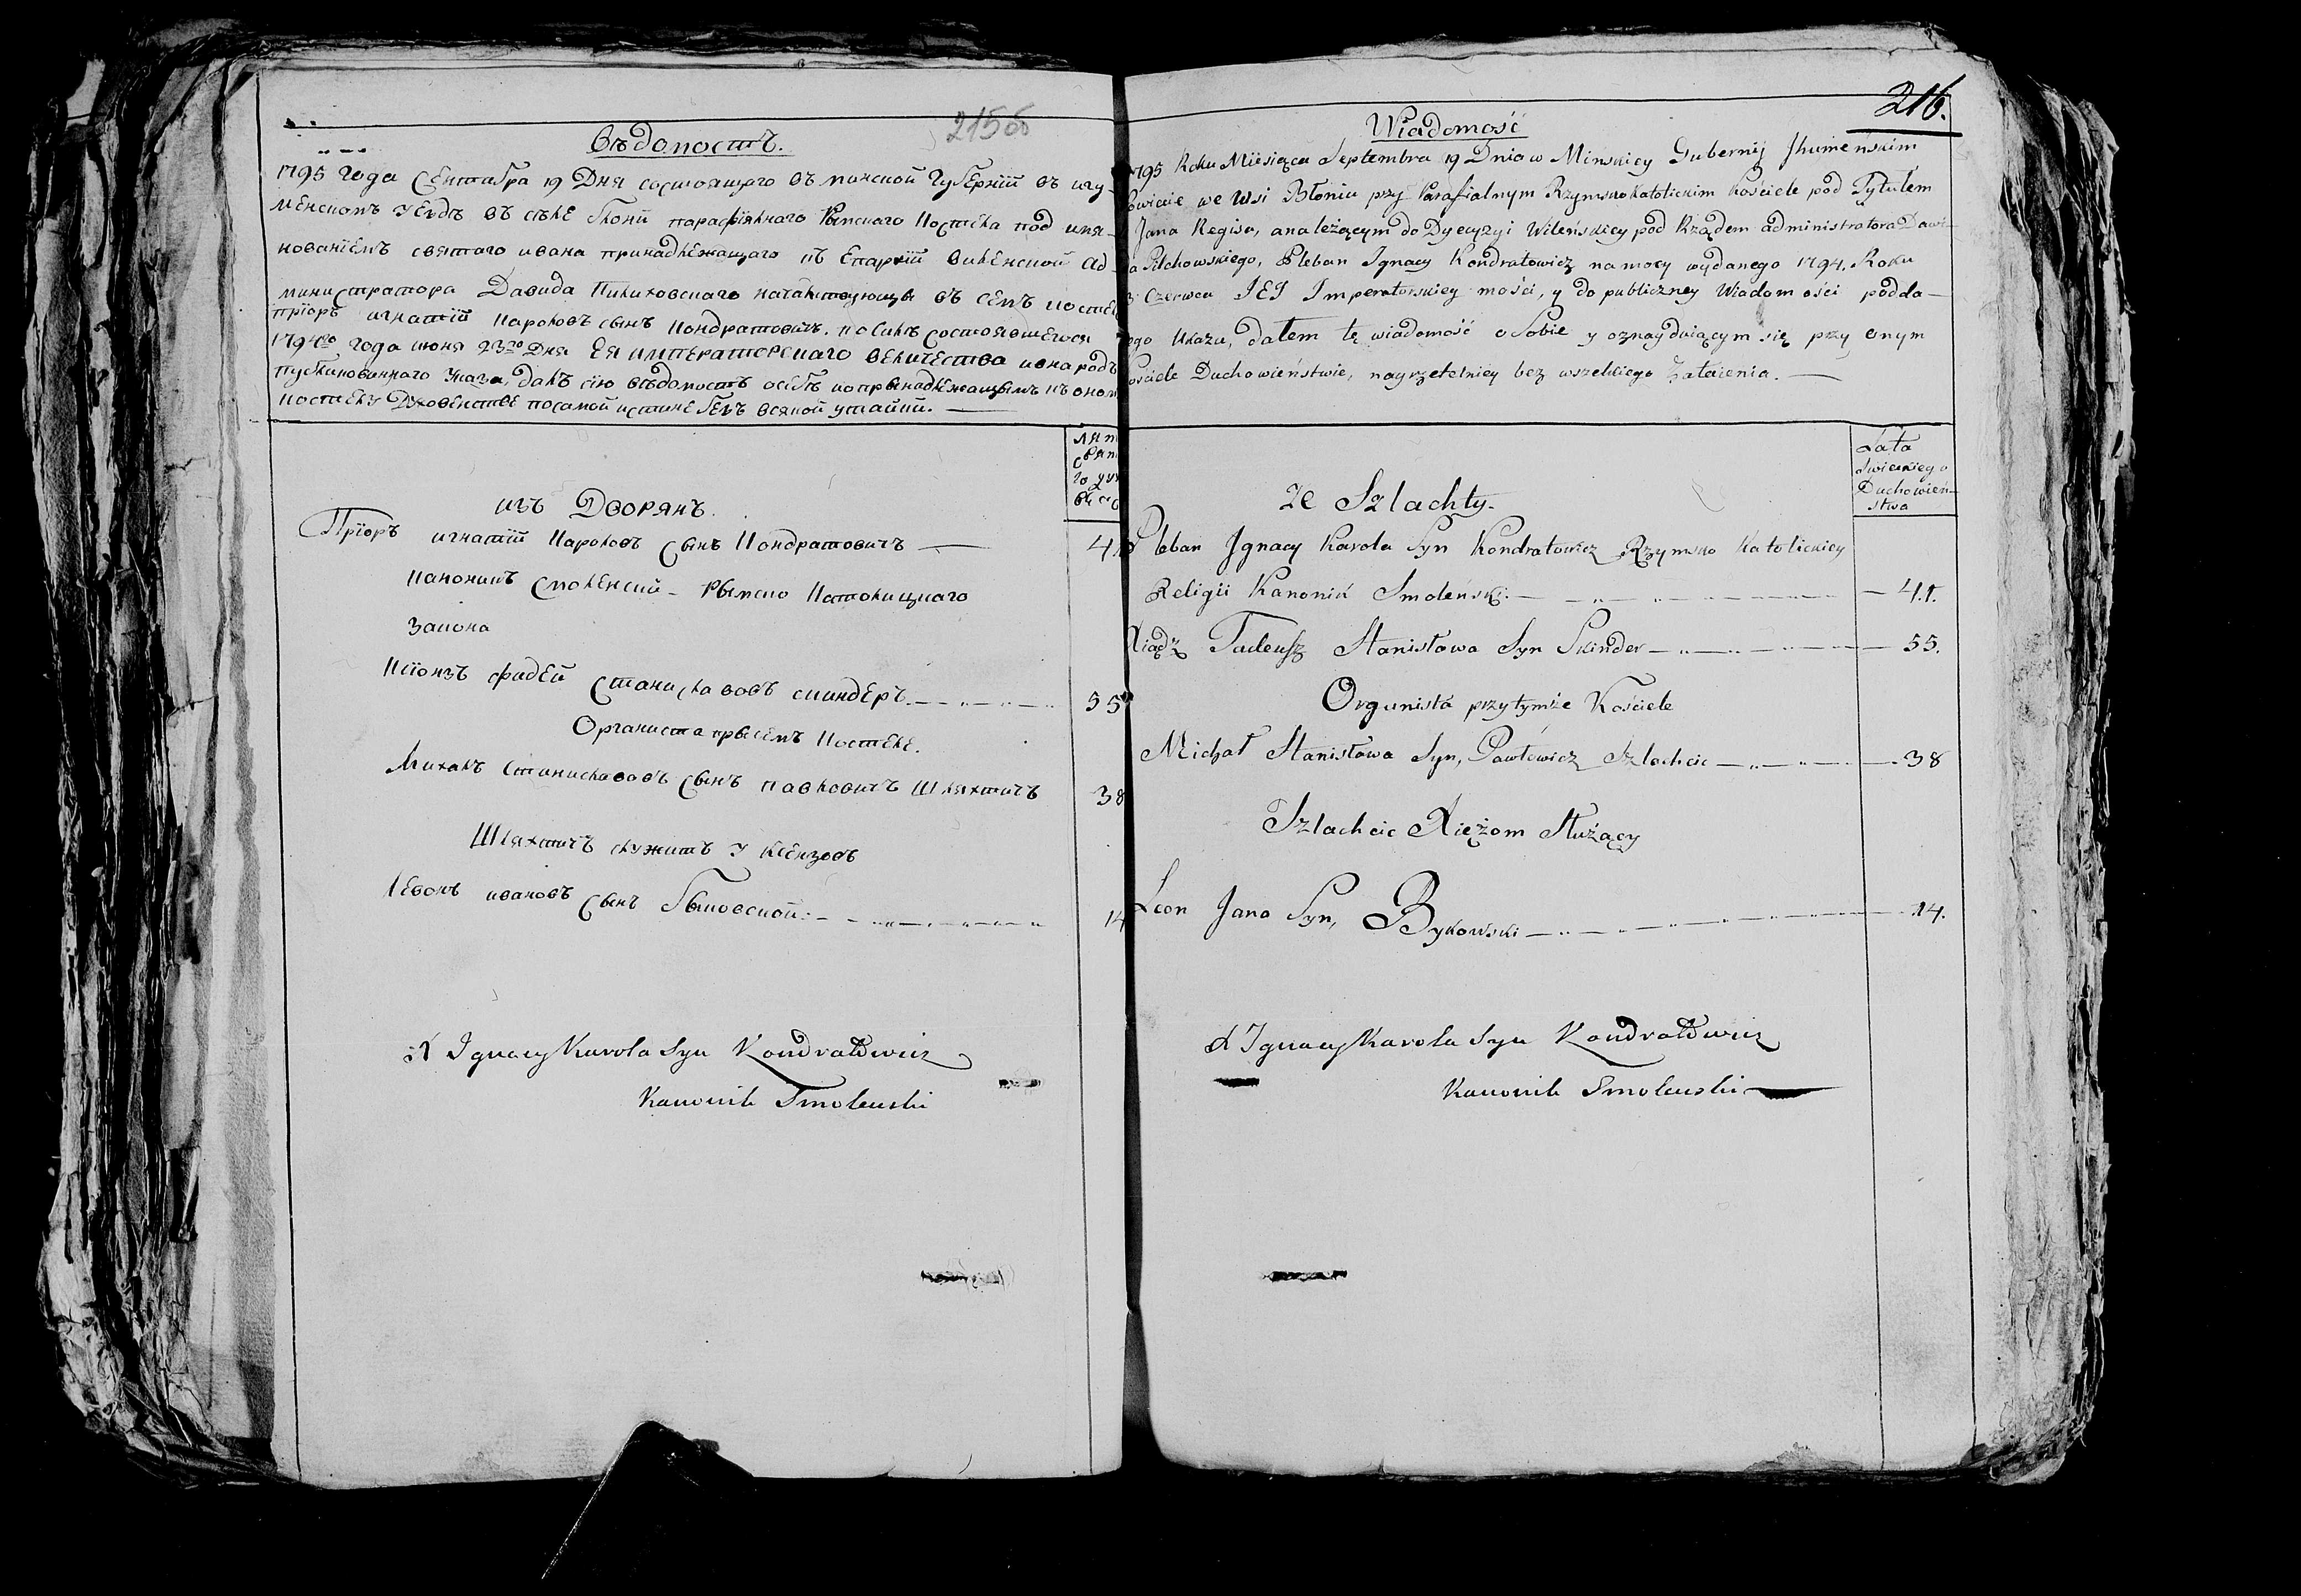 215об
Вѣдомость.
1795 года сентября 19 Дня состоящаго въ минской губерніи въ игу-
менскомъ уездѣ въ селе блони парафіялнаго Рымскаго Костела под имя-
нованіемъ святаго ивана принадлежащаго къ Епархіи виленской ад-
министратора Давида Пилховскаго началствующи въ семъ косте
пріоръ игнатій Кароловъ сынъ Кондратовичъ. по силѣ состоявшегося
1794го года июня 23го Дня Ея императорскаго величества и в народъ
публикованнаго указа, далъ сію вѣдомость о себѣ и о принадлежащымъ къ оном
костелу Духовенстве по самой истине безъ всякой утайки.
изъ Дворянъ.
Пріоръ игнатій Кароловъ Сынъ Кондратовичъ — 41
Каноникъ Смоленскій - Рымско Католицкаго
Закона
Ксіонзъ фадей Станиславовъ скиндеръ 55
Органиста при семъ Костеле.
Михалъ Станиславовъ Сынъ павловичъ Шляхтичъ 38
Шляхтичъ служитъ у Ксензовъ
Левонъ ивановъ Сынъ Быковской: 14
X Ignacy Karola Syn Kondratowicz
Kanonik Smolenski
216.
Wiadomość
1795 Roku Miesiąca Septembra 19 Dnia w Minskiey Gubernij Jhumeńskim
owiecie we Wsi Błoniu przy Parafialnym Rzymsko katolickim kościele pod Tytułem
Jana Regisa, a należącym do Dyecyzyi Wileńskiey pod Rządem administratora Dawi-
a Pilchowskiego, Pleban Jgnacy Kondratowicz na mocy wydanego 1794. Roku
3 Czerwca JEJ Jmperatorskiey mości, y do publiczney Wiadomości podda-
ego Ukazu, dałem tę wiadomość o Sobie y oznayduiącym się przy onym
ościele Duchowieństwie, nayrzetelniey bez wszelkiego zataienia. —
Lata
Swieckiego
Duchowień-
stwa
Ze Szlachty.
Pleban Jgnacy Karola Syn Kondratowicz Rzymsko Katolickiey
Religii Kanonik Smoleński. 41.
Xiądz Tadeusz Stanisława Syn Skinder 55.
Organista przy tymże Kościele
Michał Stanisława Syn, Pawłowicz Szlachcic 38
Szlachcic Xiężom Służący
Leon Jana Syn, Bykowski 14.
X Ignacy Karola Syn Kondratowicz
Kanonik Smolenski